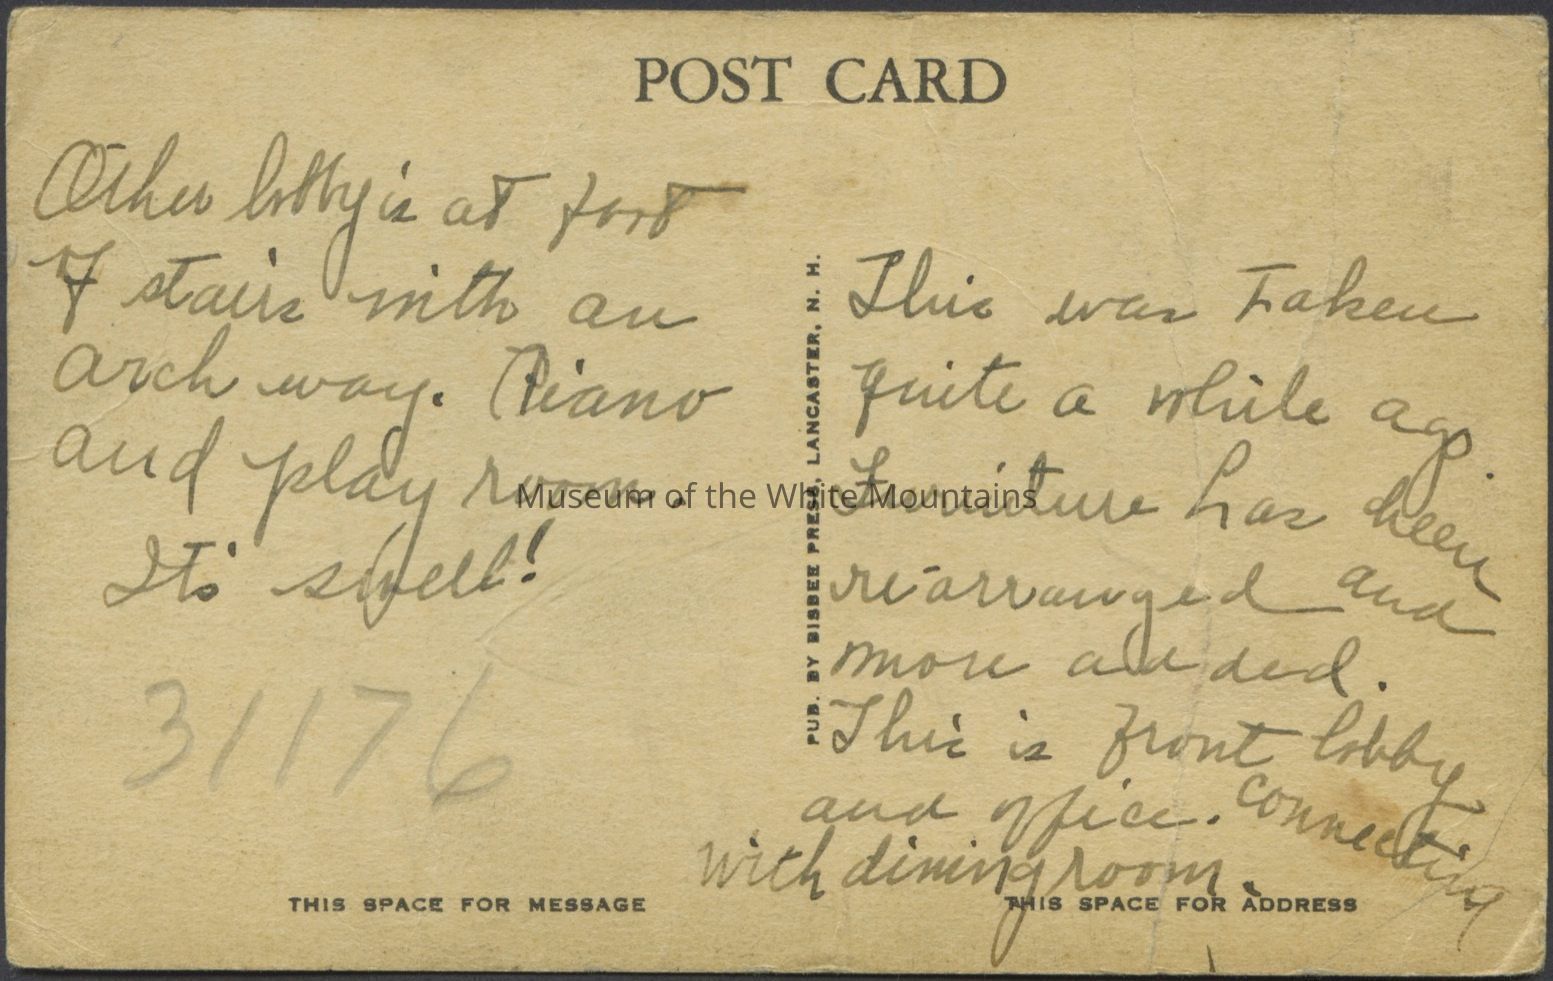 POST CARD
Other lobby is at foot
of stairs with an
arch way. Piano
and play room.
It's swell!
31176
THIS SPACE FOR MESSAGE
PUB. BY BISBEE PRESS, LANCASTER, N. H.
This was taken
quite a while ago.
Furniture has been
re-arranged and
more added.
This is front lobby
and office. connecting
with dining room.
THIS SPACE FOR ADDRESS
Museum of the White Mountains